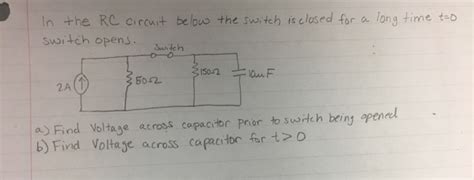 In the RC circuit below the switch is closed for a long time t=0
switch opens.
Switch
2A
50Ω
150Ω
10uF
a) Find Voltage across capacitor prior to switch being opened
b) Find Voltage across capacitor for t>0